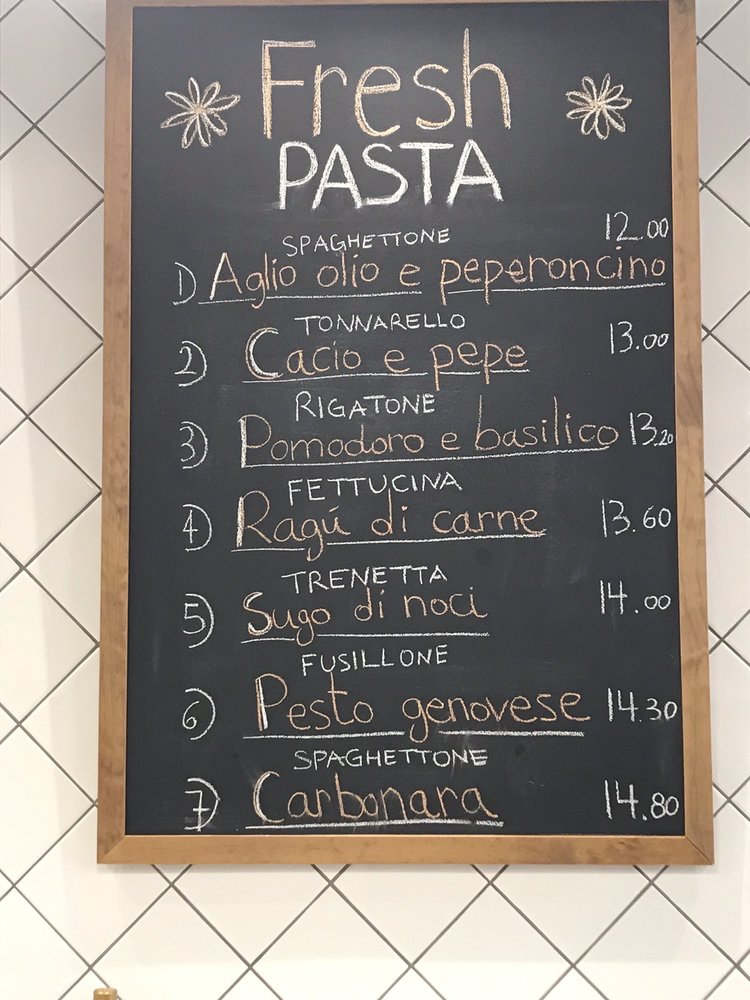 Fresh
PASTA
SPAGHETTONE 12.00
1) Aglio olio e peperoncino
TONNARELLO 13.00
2) Cacio e pepe
RIGATONE
3) Pomodoro e basilico 13.20
FETTUCINA
4) Ragú di carne 13.60
TRENETTA
5) Sugo di noci 14.00
FUSILLONE
6) Pesto genovese 14.30
SPAGHETTONE
7) Carbonara 14.80